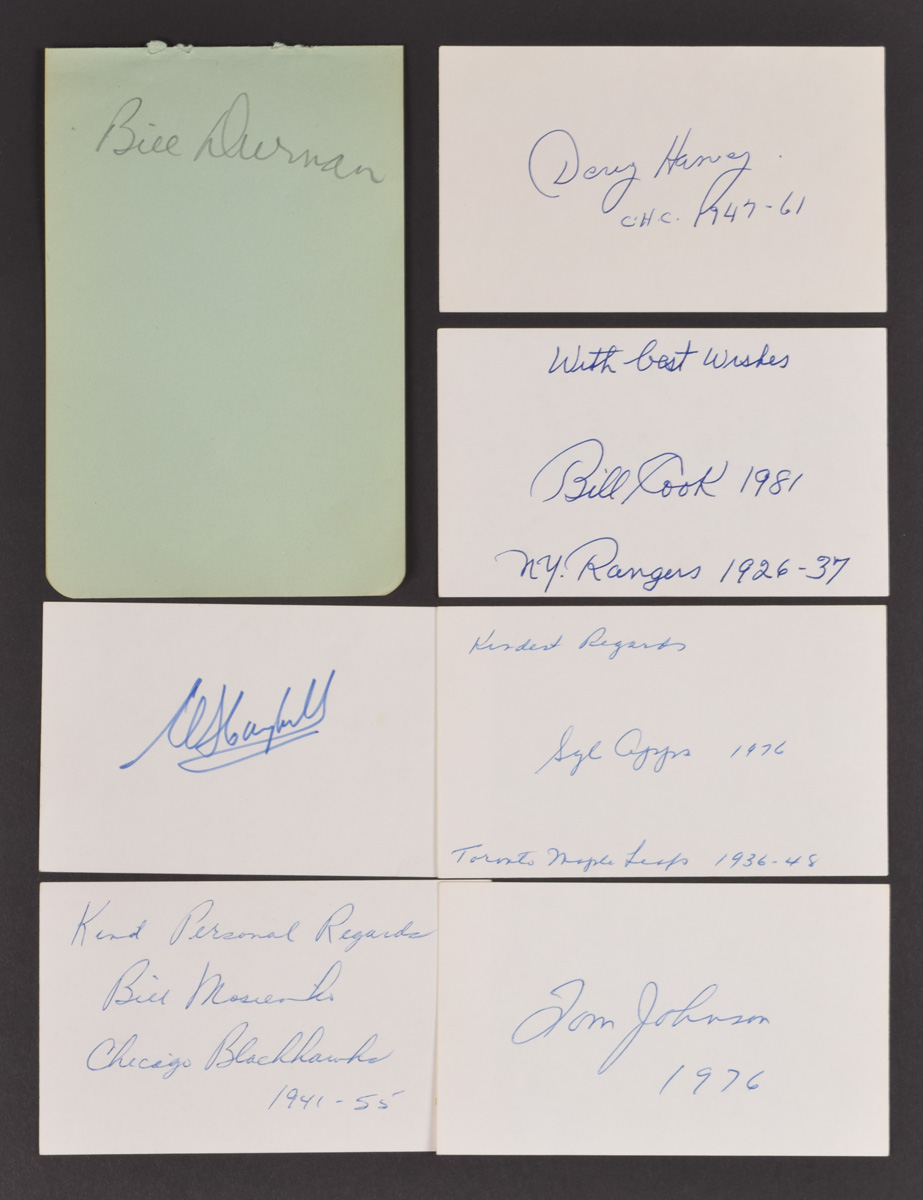 Bill Durnan
Doug Harvey
C.H.C. 1947-61
With best wishes
Bill Cook 1981
N.Y. Rangers 1926-37
Campbell
Kindest Regards
Syl Apps 1976
Toronto Maple Leafs 1936-48
Kind Personal Regards
Bill Mosienko
Chicago Blackhawks
1941-55
Tom Johnson
1976